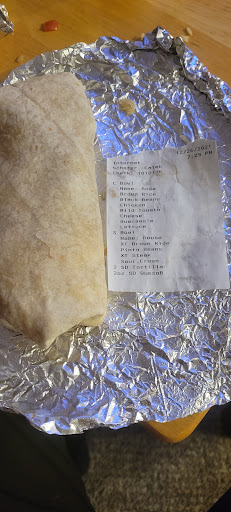 12/26/2021
7:25 PM
Internet
C Bowl
Brown Rice
Black Beans
Chicken
Mild Tomato
Cheese
Guacamole
Lettuce
S Bowl
XT Brown Rice
Pinto Beans
XT Steak
Sour Cream
2 SD Tortilla